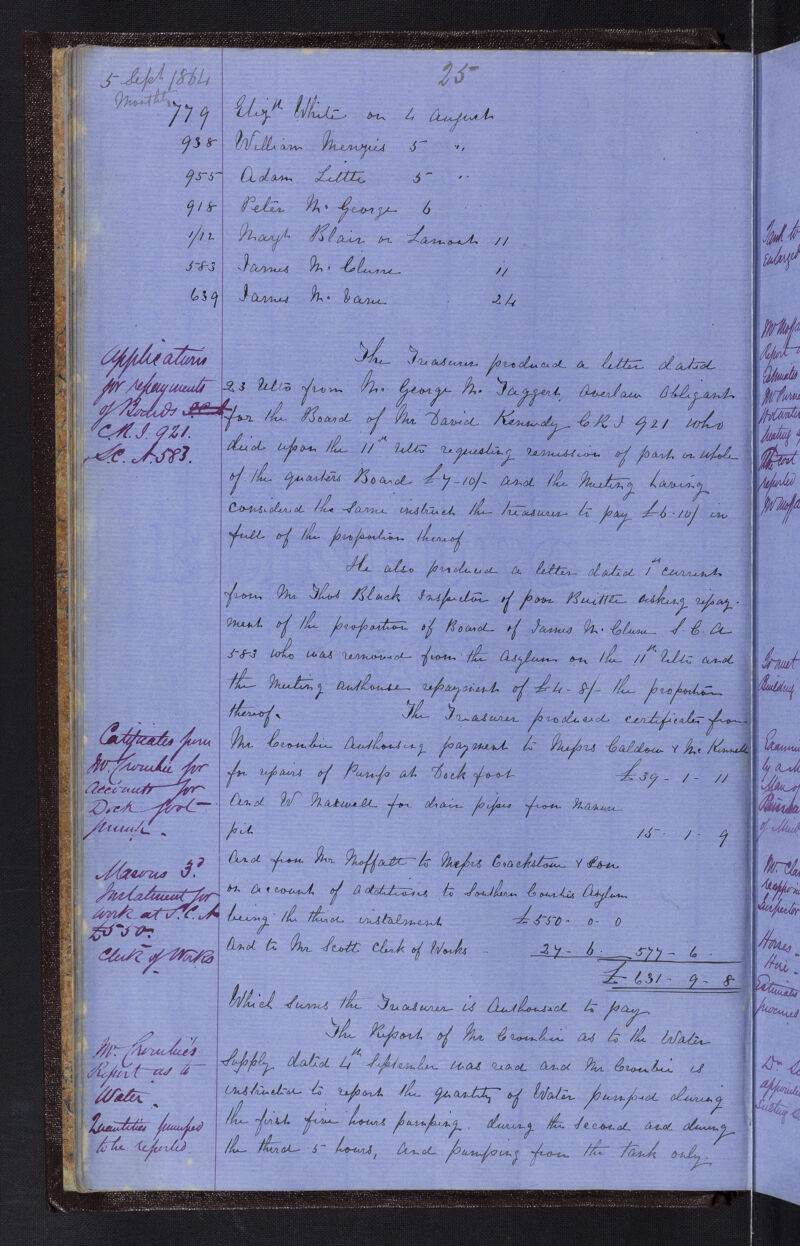 5 Sept 1864
Monthly
25
779 Elizth White on 4 August
938 William Menzies 5 "
955 Adam Little 5 "
918 Peter Mc George 6
1/12 Margt Blair or Lamont 11
583 James Mc Clune 11
639 James Mc 24
Applications
for repayments
of Boards
C.R.I. 921.
S.C.A 583.
The Treasurer produced a letter dated
23 Ulto from Mr George Mc Taggert, Overlaw Obligant
for the Board of Mr David Kennedy C.R.I 921 who
died upon the 11th Ulto requesting remission of part or whole
of the quarters Board £7-10/- and the Meeting having
considered the same instruct the treasurer to pay £6.10/ in
full of the proportion thereof
He also produced a letter dated 1st current
from Mr Thos Black Inspector of poor Buittle asking repay-
ment of the proportion of Board of James Mc Clune S.C.A
583 who was removed from the asylum on the 11th Ulto and
the Meeting authorise repayment of £4-8/- the proportion
thereof. The Treasurer produced certificates from
Certificates from
Mr. Crombie for
accounts for
Dock foot
pump.
Mr Crombie authorising payment to Messrs Caldow & Mc Kinnell
for repairs of Pump at Dock foot £39-1-11
And W Maxwell for drain pipes from manure
pit 15-1-9
Masons 3d
Instalment for
work at S.C.A
£550.
Clerk of Works
And from Mr Moffatt to Messrs Crackstone & Son
on account of additions to Southern Counties Asylum
being the third instalment £550-0-0
And to Mr Scott Clerk of Works - 27-6- 577-6-
£631-9-8
Which sums the Treasurer is Authorised to pay
Mr. Crombie's
Report as to
Water.
Quantities pumped
to be reported
The Report of Mr Crombie as to the Water
Supply dated 4th September was read and Mr Crombie is
instructed to report the quantity of Water pumped during
the first five hours pumping. during the second and during
the third 5 hours, and pumping from the tank only.
Tank to
enlarged
Report
Estimates
Meeting
cost
reported
Building
Mr. Cla
Inspector
Horses-
Hire-
Estimates